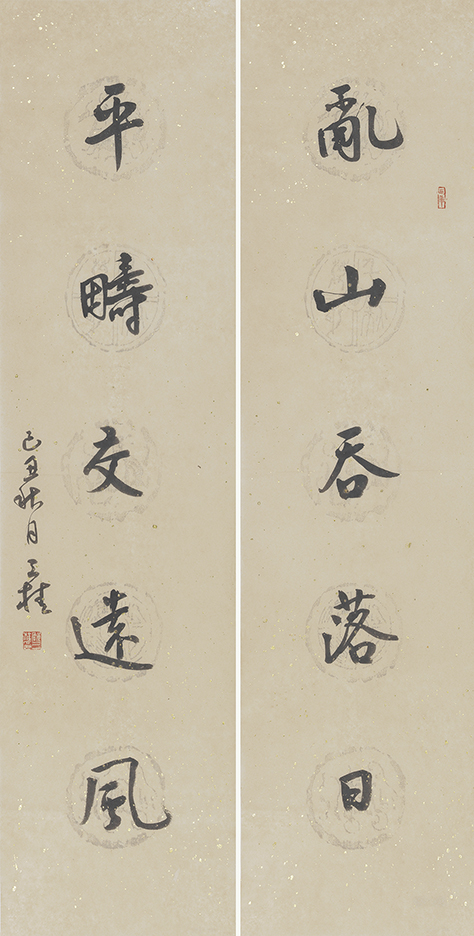 亂山吞落日
平疇交遠風
己丑秋月